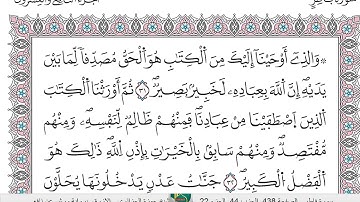 وَالَّذِي أَوْحَيْنَا إِلَيْكَ مِنَ الْكِتَابِ هُوَ الْحَقُّ مُصَدِّقًا لِمَا بَيْنَ
يَدَيْهِ إِنَّ اللَّهَ بِعِبَادِهِ لَخَبِيرٌ بَصِيرٌ ٣١ ثُمَّ أَوْرَثْنَا الْكِتَابَ
الَّذِينَ اصْطَفَيْنَا مِنْ عِبَادِنَا فَمِنْهُمْ ظَالِمٌ لِنَفْسِهِ وَمِنْهُمْ
مُقْتَصِدٌ وَمِنْهُمْ سَابِقٌ بِالْخَيْرَاتِ بِإِذْنِ اللَّهِ ذَلِكَ هُوَ
الْفَضْلُ الْكَبِيرُ ٣٢ جَنَّاتُ عَدْنٍ يَدْخُلُونَهَا يُحَلَّوْنَ
الصفحة 438 44 22